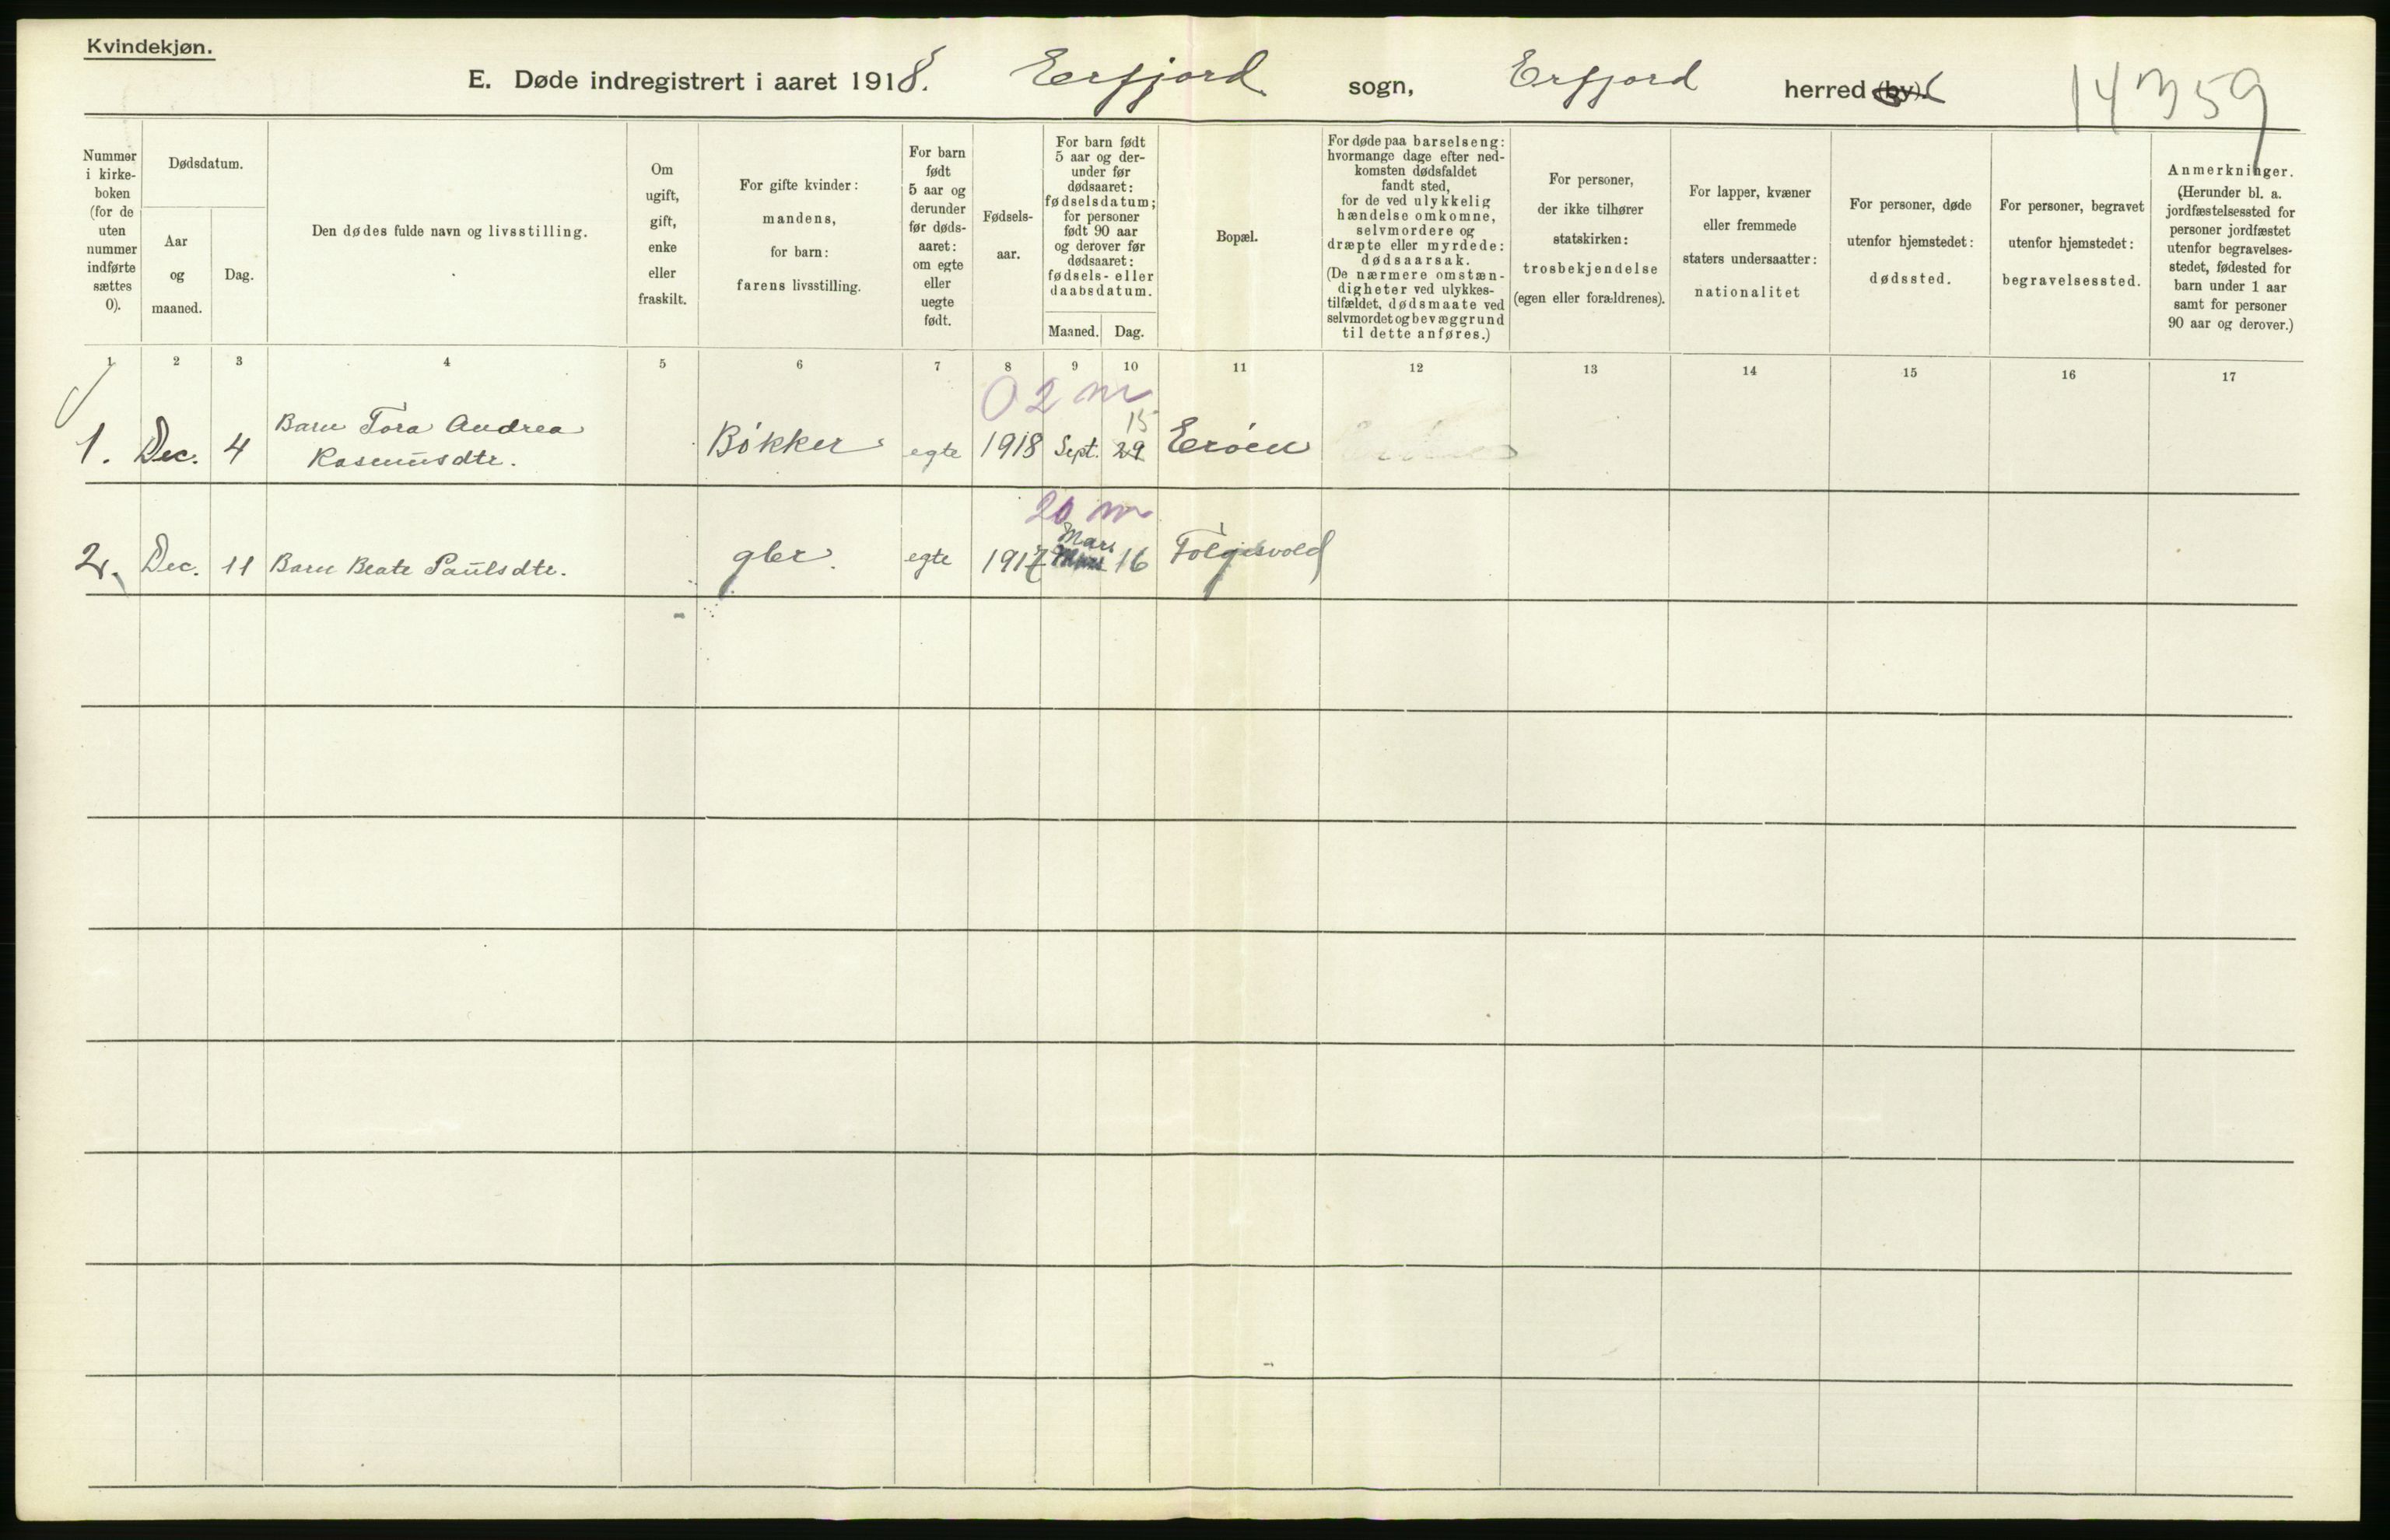 Kvindekjøn.
E. Døde indregistrert i aaret 1918. Erfjord sogn, Erfjord herred (by).
14359
Nummer
i kirke-
boken
(for de
uten
nummer
indførte
sættes
0).
Dødsdatum.
Aar
og
maaned.
Dag.
Den dødes fulde navn og livsstilling.
Om
ugift,
gift,
enke
eller
fraskilt.
For gifte kvinder:
mandens,
for barn:
farens livsstilling.
For barn
født
5 aar og
derunder
før døds-
aaret:
om egte
eller
uegte
født.
Fødsels-
aar.
For barn født
5 aar og der-
under før
dødsaaret:
fødselsdatum;
for personer
født 90 aar
og derover før
dødsaaret:
fødsels- eller
daabsdatum.
Maaned.
Dag.
Bopæl.
For døde paa barselseng:
hvormange dage efter ned-
komsten dødsfaldet
fandt sted,
for de ved ulykkelig
hændelse omkomne,
selvmordere og
dræpte eller myrdede:
dødsaarsak.
(De nærmere omstæn-
digheter ved ulykkes-
tilfældet, dødsmaate ved
selvmordet og bevæggrund
til dette anføres.)
For personer,
der ikke tilhører
statskirken:
trosbekjendelse
(egen eller forældrenes).
For lapper, kvæner
eller fremmede
staters undersaatter:
nationalitet
For personer, døde
utenfor hjemstedet:
dødssted.
For personer, begravet
utenfor hjemstedet:
begravelsessted.
Anmerkninger.
(Herunder bl. a.
jordfæstelsessted for
personer jordfæstet
utenfor begravelses-
stedet, fødested for
barn under 1 aar
samt for personer
90 aar og derover.)
1 2 3 4 5 6 7 8 9 10 11 12 13 14 15 16 17
0 2 m
15
1. Dec. 4 Barn Tora Andrea
Rasmusdtr. Bøkker egte 1918 Sept. 29 Erøen
20 m
Mars
2. Dec. 11 Barn Beate Paulsdtr. gbr. egte 1917 16 Folgesvold